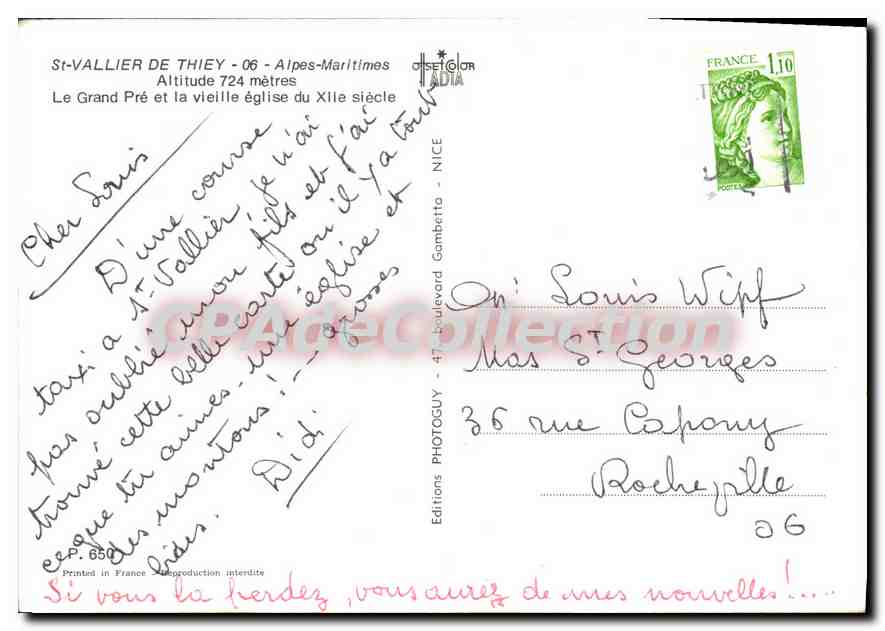 St-VALLIER DE THIEY - 06 - Alpes-Maritimes
Altitude 724 mètres
Le Grand Pré et la vieille église du XIIe siècle
OFFSETCOLOR
ADIA
FRANCE 1,10
POSTES
Cher Louis
D'une course
taxi a St Vallier, je n'ai
pas oublié mon fils et j'ai
trouvé cette belle carte ou il y a tout
ce que tu aimes - une église et
des moutons! - grosses
bises.
Didi
Editions PHOTOGUY - 47, boulevard Gambetta - NICE
Louis Wipf
Mas St Georges
36 rue Capony
Rocheville
06
P. 650
Printed in France - Reproduction interdite
Si vous la perdez, vous aurez de mes nouvelles!....
CPAdeCollection